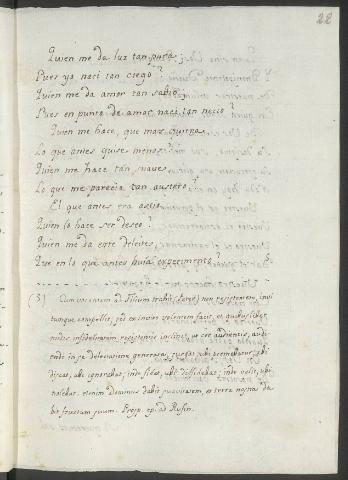 22
Quien me da luz tan pura,
Pues yo naci tan ciego?
Quien me da amor tan sabio
Pues en punto de amor, naci tan necio?
Quien me hace, que mas quiera
Lo que antes quise menos?
Quien me hace tan suave
Lo que me parecia tan austero
El que antes era
Quien lo hace ser deseo?
Quien me da este deleite
Que en lo que antes huia experimento? 5.
(5) Cum vocantem ad Filium trahit (Pater) non resistentem, invi
tumque compellit; sed ex invito volentem facit, et quibuslibet
modis infidelitatem resistentis inclinat, ut cor audientis, audi
endi in se delectatione generata, surgat ubi premebatur; ubi
discat, ubi ignorabat; inde fidat, ubi diffidebat; inde velit, ubi
nolebat. etenim Dominus dabit suavitatem, et terra nostra da
bit fructum suum. Prosp. ep. ad Rufin.